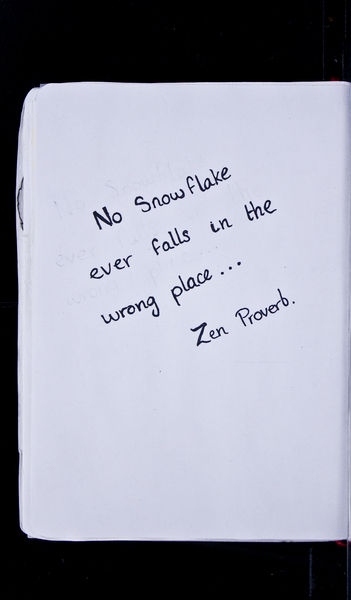 No Snowflake
ever falls in the
wrong place...
Zen Proverb.